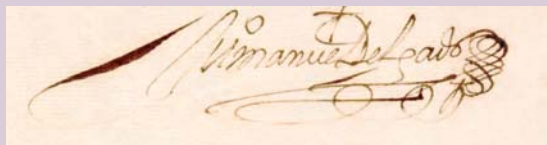 manuel Delgado